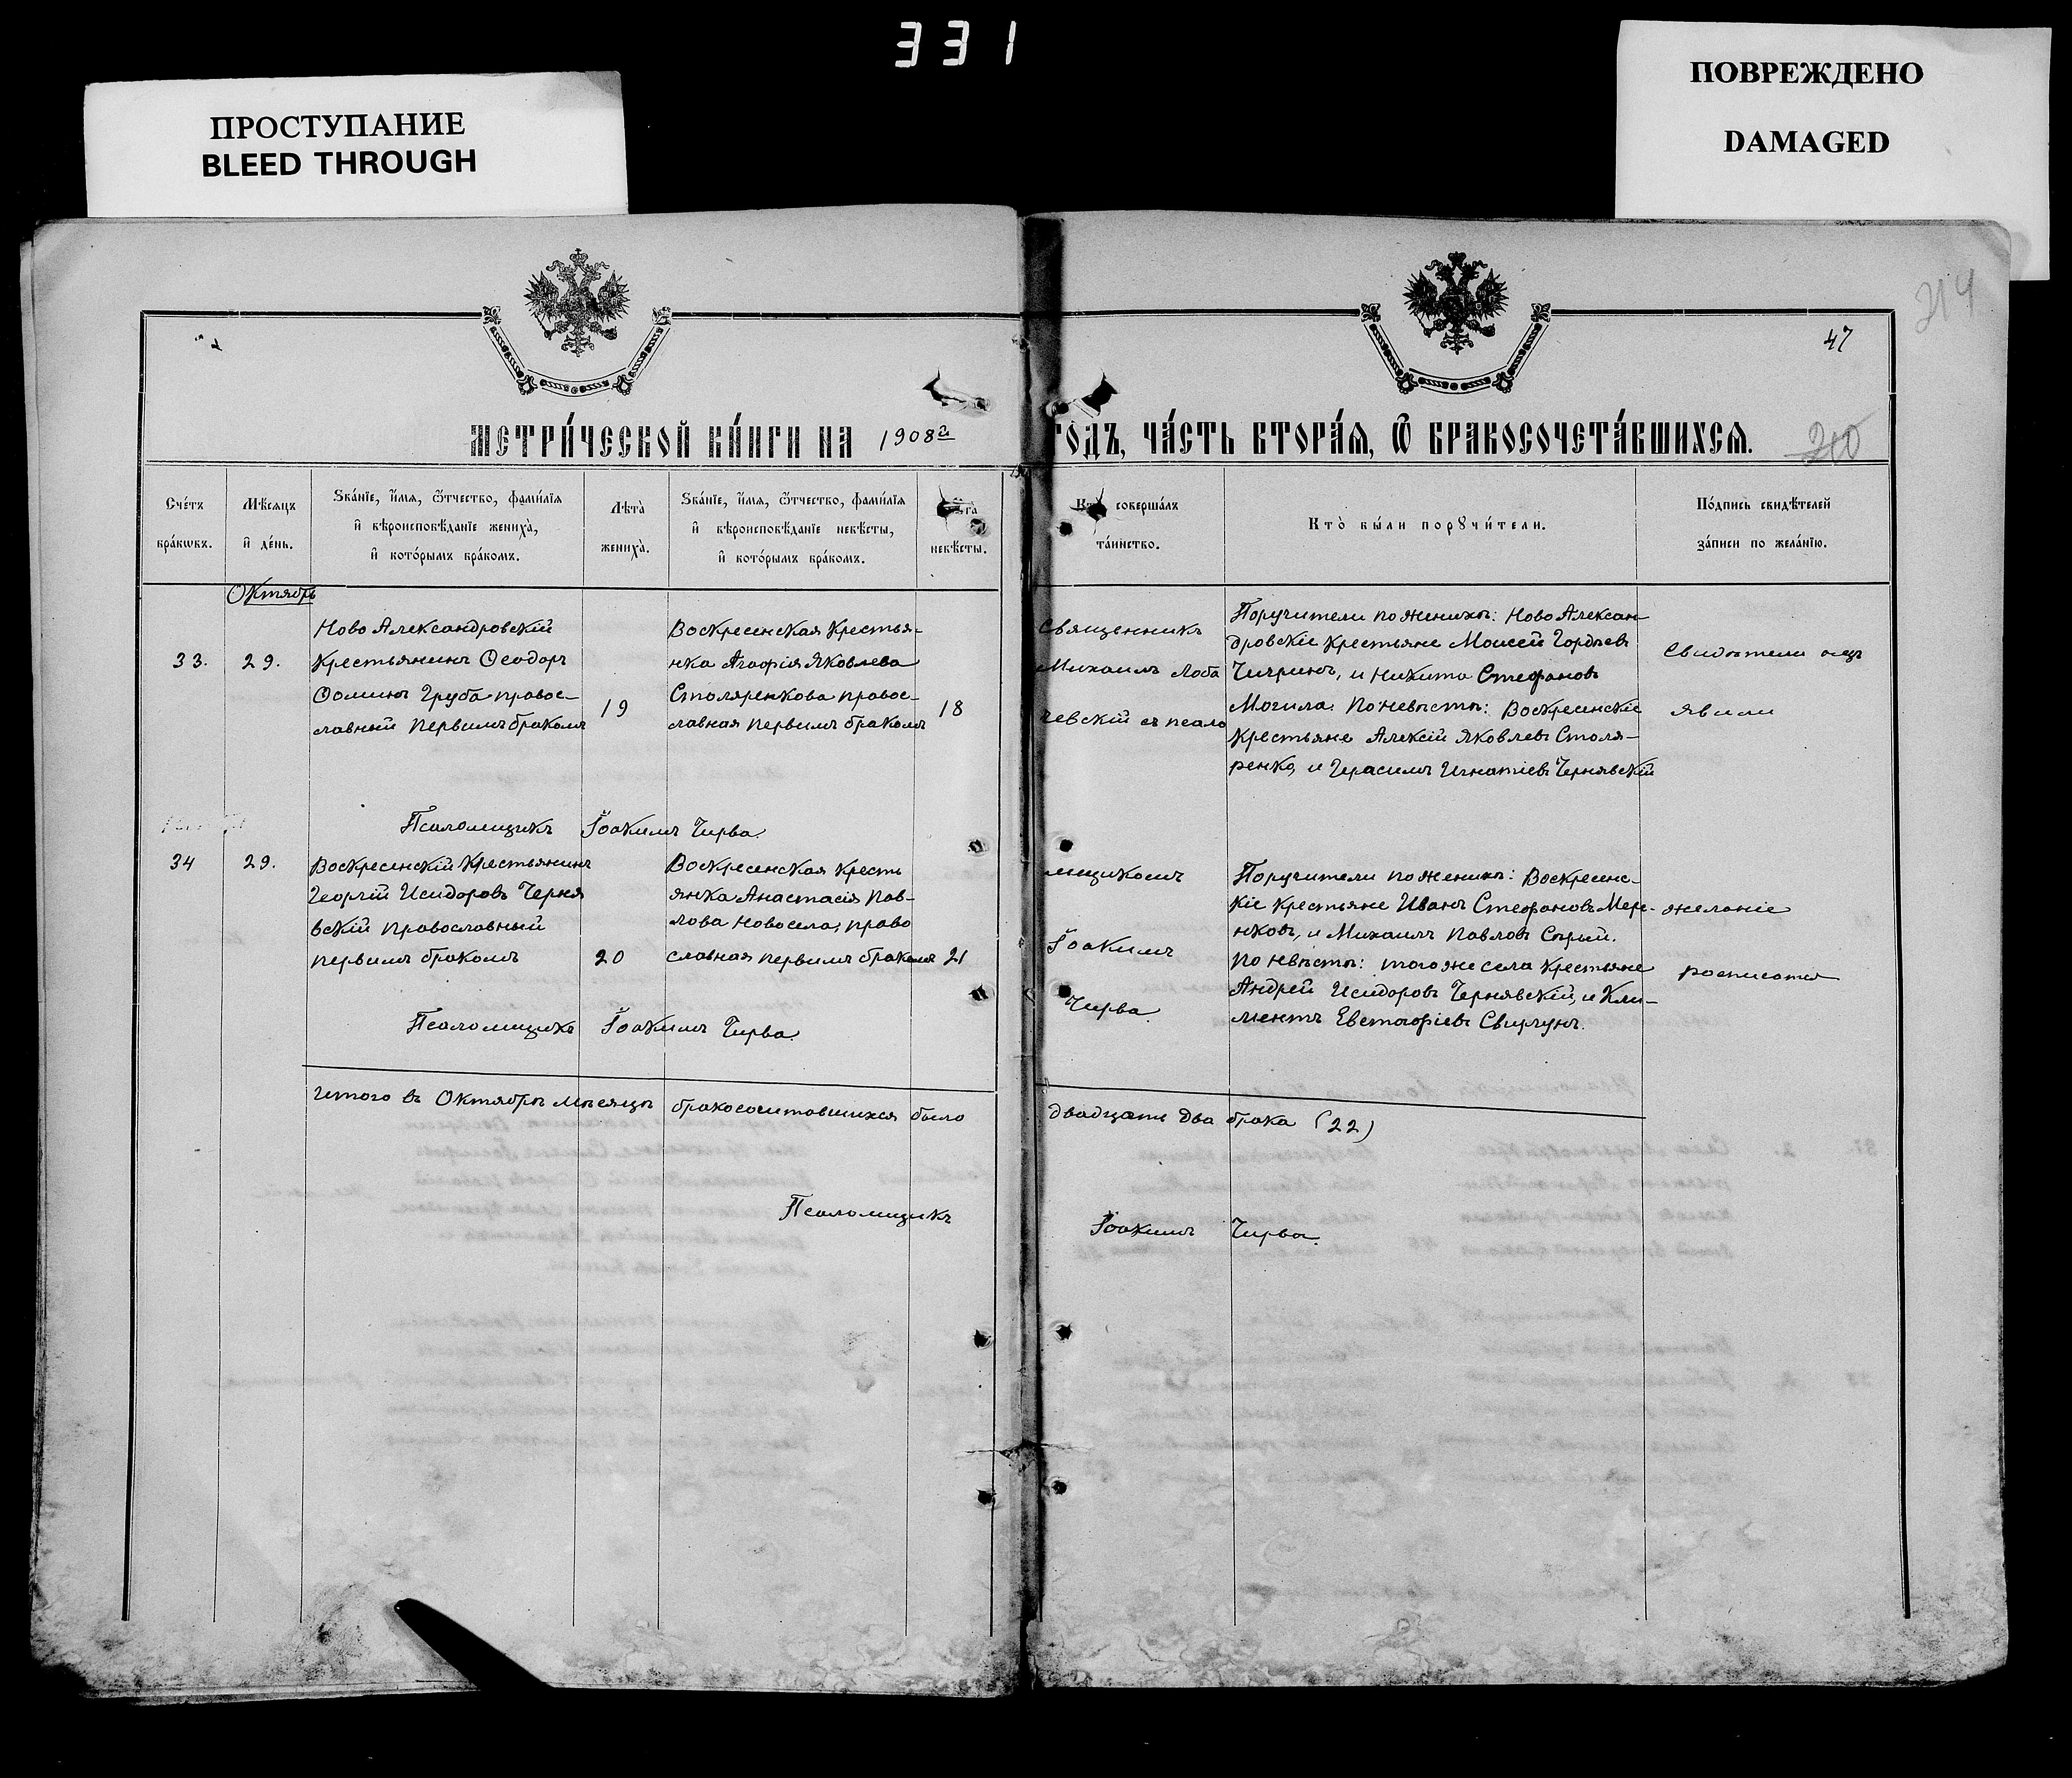 331
ПРОСТУПАНИЕ
BLEED THROUGH
ПОВРЕЖДЕНО
DAMAGED
214
47
МЕТРИ́ЧЕСКОЙ КНИ́ГИ НА 1908й ГОДЪ, ЧА́СТЬ ВТОРА́Я, Ѿ БРАКОСОЧЕТА́ВШИХСЯ.
210
Сче́тъ
бра́кѡвъ.
Мѣ́сяцъ
и҆ де́нь.
Ѕва́нїе, и҆́мя, ѻ҆́тчество, фами́лїя
и҆ вѣроисповѣ́данїе жениха̀,
и҆ кото́рымъ бра́комъ.
Лѣта̀
жениха̀.
Ѕва́нїе, и҆́мя, ѻ҆́тчество, фами́лїя
и҆ вѣроисповѣ́данїе невѣ́сты,
и҆ кото́рымъ бра́комъ.
Лѣта̀
невѣ́сты.
Кто̀ соверша́лъ
та́инство.
Кто̀ бы́ли порꙋчи́тели.
По́дпись свидѣ́телей
за́писи по жела́нїю.
Октябрь
33.
29.
Ново Александровскій
Крестьянинъ Ѳеодоръ
Ѳоминъ Груба правос-
лавный первымъ бракомъ
19
Воскресенская Крестья-
нка Агафія Яковлева
Столяренкова правос-
лавная первымъ бракомъ
18
Священникъ
Михаилъ Лоба
чевскій съ псало
Поручители по женихѣ: Ново Александ-
дровскіе Крестьяне Моисей Гордѣевъ
Чигринъ, и Никита Стефановъ
Могила. По невѣстѣ: Воскресенскіе
Крестьяне Алексій Яковлевъ Столя-
ренко, и Герасимъ Игнатіевъ Чернявскій
Свидѣтели
явили
Псаломщикъ Іоакимъ Чирва.
34
29.
Воскресенскій Крестьянинъ
Георгій Исидоровъ Черня
вскій православный
первымъ бракомъ
20
Воскресенская Кресть
янка Анастасія Пав-
лова Новосела, право
славная первымъ бракомъ
21
мщикомъ
Іоакимъ
Чирва.
Поручители по женихѣ: Воскресенс-
кіе Крестьяне Иванъ Стефановъ Мере-
нковъ, и Михаилъ Павловъ Сѣрый.
По невѣстѣ: того же села Крестьяне
Андрей Исидоровъ Чернявскій, и Кли-
ментъ Евстафіевъ Свиргунъ.
желаніе
росписатся
Псаломщикъ Іоакимъ Чирва.
Итого въ Октябрѣ мѣсяцѣ бракосочитавшихся было двадцать два брака (22)
Псаломщикъ Іоакимъ Чирва.